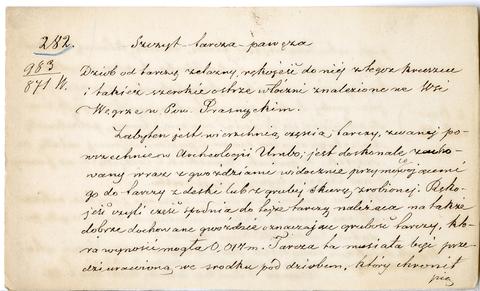 282. Szczyt-tarcza-pawęza
983
871 W.
Dziób od tarczy żelazny, rękojeść do niéj z tegoż kruszcu
i takież szerokie ostrze włóczni znalezione we Wsi
Węgrze w Pow. Prasnyckim.
Zabytek jest wierzchnią częścią tarczy, zwanéj po-
wszechnie w Archeologji Umbo; jest doskonale zacho-
wany wraz z gwoździami widocznie przymocowującemi
go do tarczy z deski lub z grubéj skóry zrobionéj. Ręko-
jeść czyli część spodnia do téjże tarczy należąca ma także
dobrze dochowane gwoździe oznaczające grubość tarczy, któ-
ra wynosić mogła 0,017 m. Tarcza ta musiała być prze-
dziurawioną we środku pod dziobem, który chronił
pię